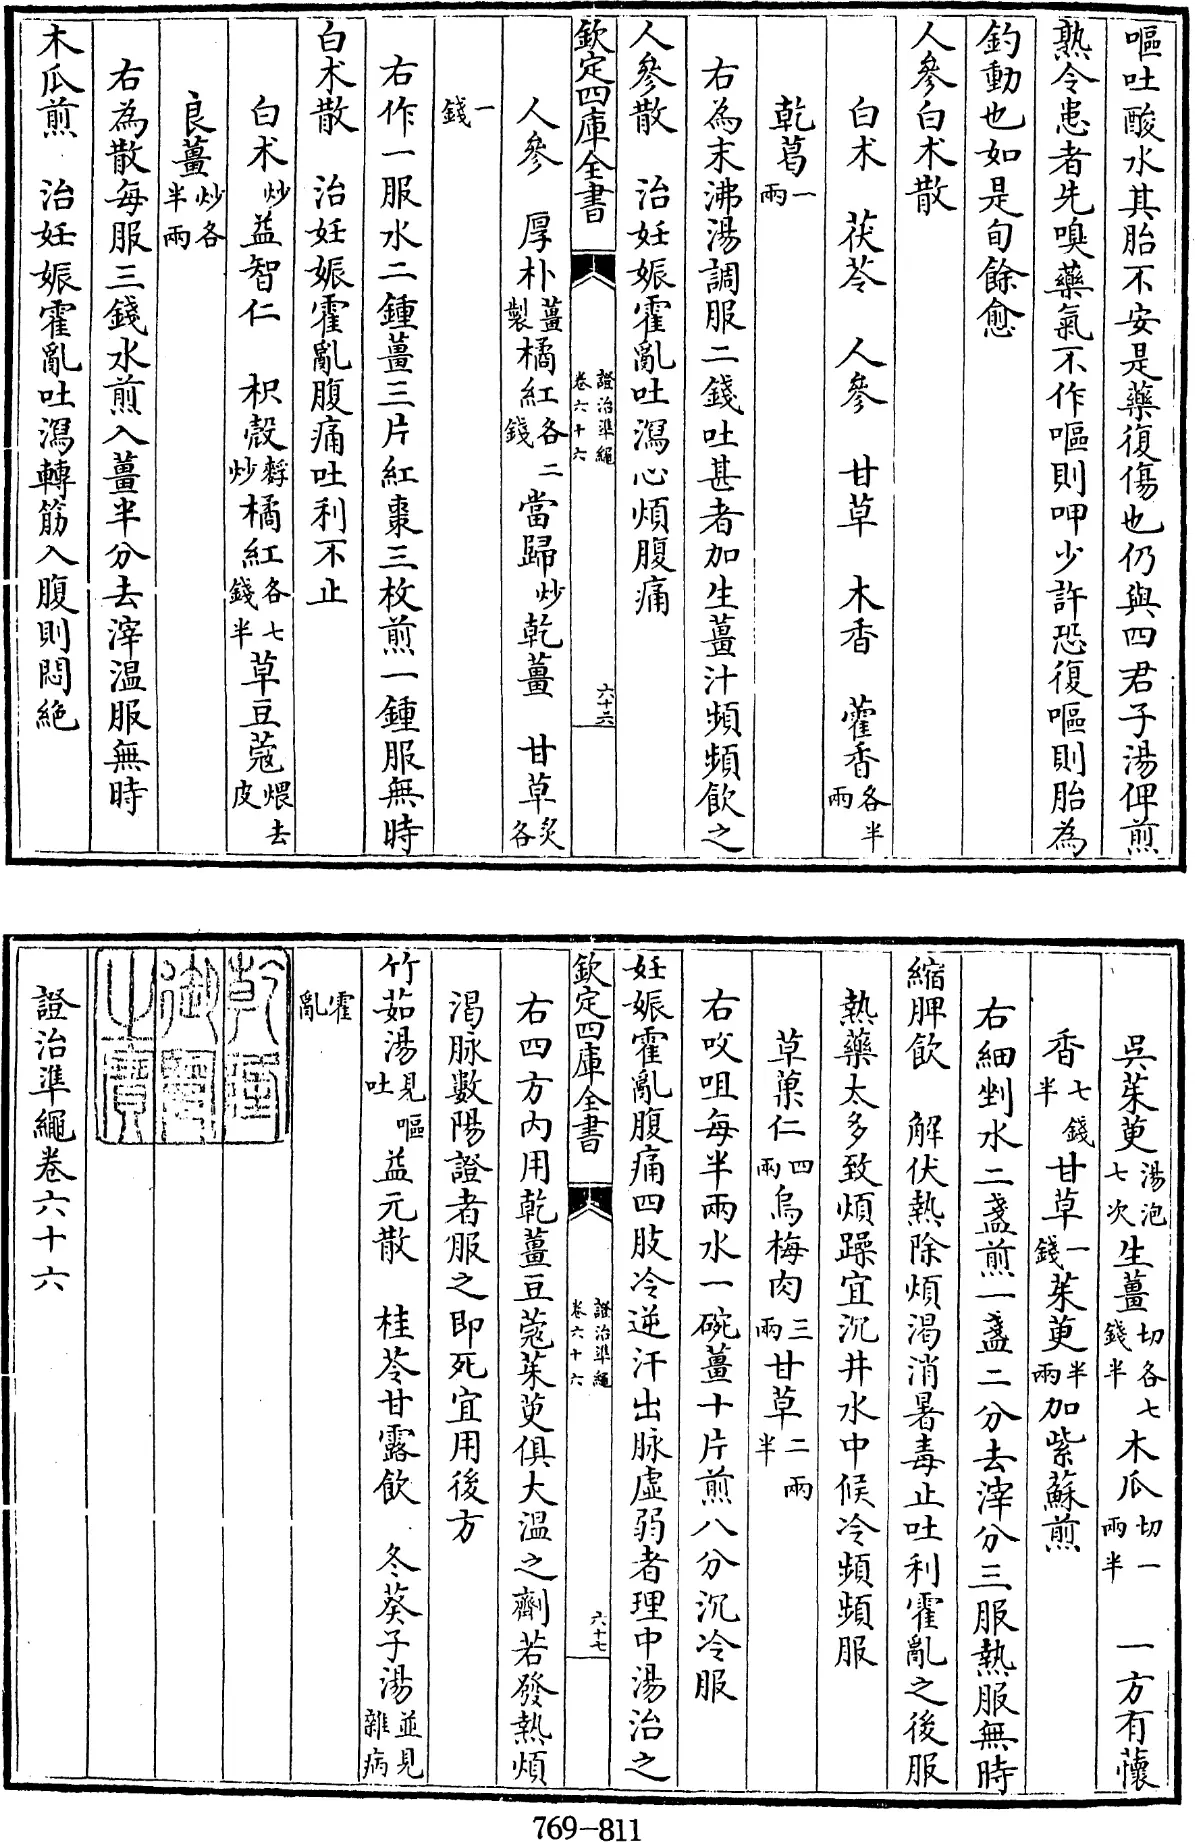 嘔吐酸水其胎不安是藥復傷也仍與四君子湯俾煎
熟令患者先嗅藥氣不作嘔則呷少許恐復嘔則胎為
釣動也如是旬餘愈
人參白术散
白术　茯苓　人參　甘草　木香　藿香各半兩
乾葛一兩
右為末沸湯調服二錢吐甚者加生薑汁頻頻飲之
人參散　治妊娠霍亂吐瀉心煩腹痛
欽定四庫全書　證治準繩卷六十六　六十六
人參　厚朴薑製橘紅各二錢當歸炒乾薑　甘草炙各
一錢
右作一服水二鍾薑三片紅棗三枚煎一鍾服無時
白术散　治妊娠霍亂腹痛吐利不止
白术炒益智仁　枳殻麩炒橘紅各七錢半草豆蔻煨去皮
良薑炒各半兩
右為散每服三錢水煎入薑半分去滓温服無時
木瓜煎　治妊娠霍亂吐瀉轉筋入腹則悶絶
吳茱萸湯泡七次生薑切各七錢半木瓜切一兩半　一方有懷
香七錢半甘草一錢茱萸半兩加紫蘇煎
右細剉水二盞煎一盞二分去滓分三服熱服無時
縮脾飲　解伏熱除煩渴消暑毒止吐利霍亂之後服
熱藥太多致煩躁宜沉井水中候冷頻頻服
草菓仁四兩烏梅肉三兩甘草二兩半
右㕮咀每半兩水一碗薑十片煎八分沉冷服
妊娠霍亂腹痛四肢冷逆汗出脉虛弱者理中湯治之
欽定四庫全書　證治準繩卷六十六　六十七
右四方内用乾薑豆蔻茱萸俱大温之劑若發熱煩
渴脉數陽證者服之即死宜用後方
竹茹湯見嘔吐益元散　桂苓甘露飲　冬葵子湯並見雜病
霍亂
乾隆御覽之寶
證治準繩卷六十六
769-811